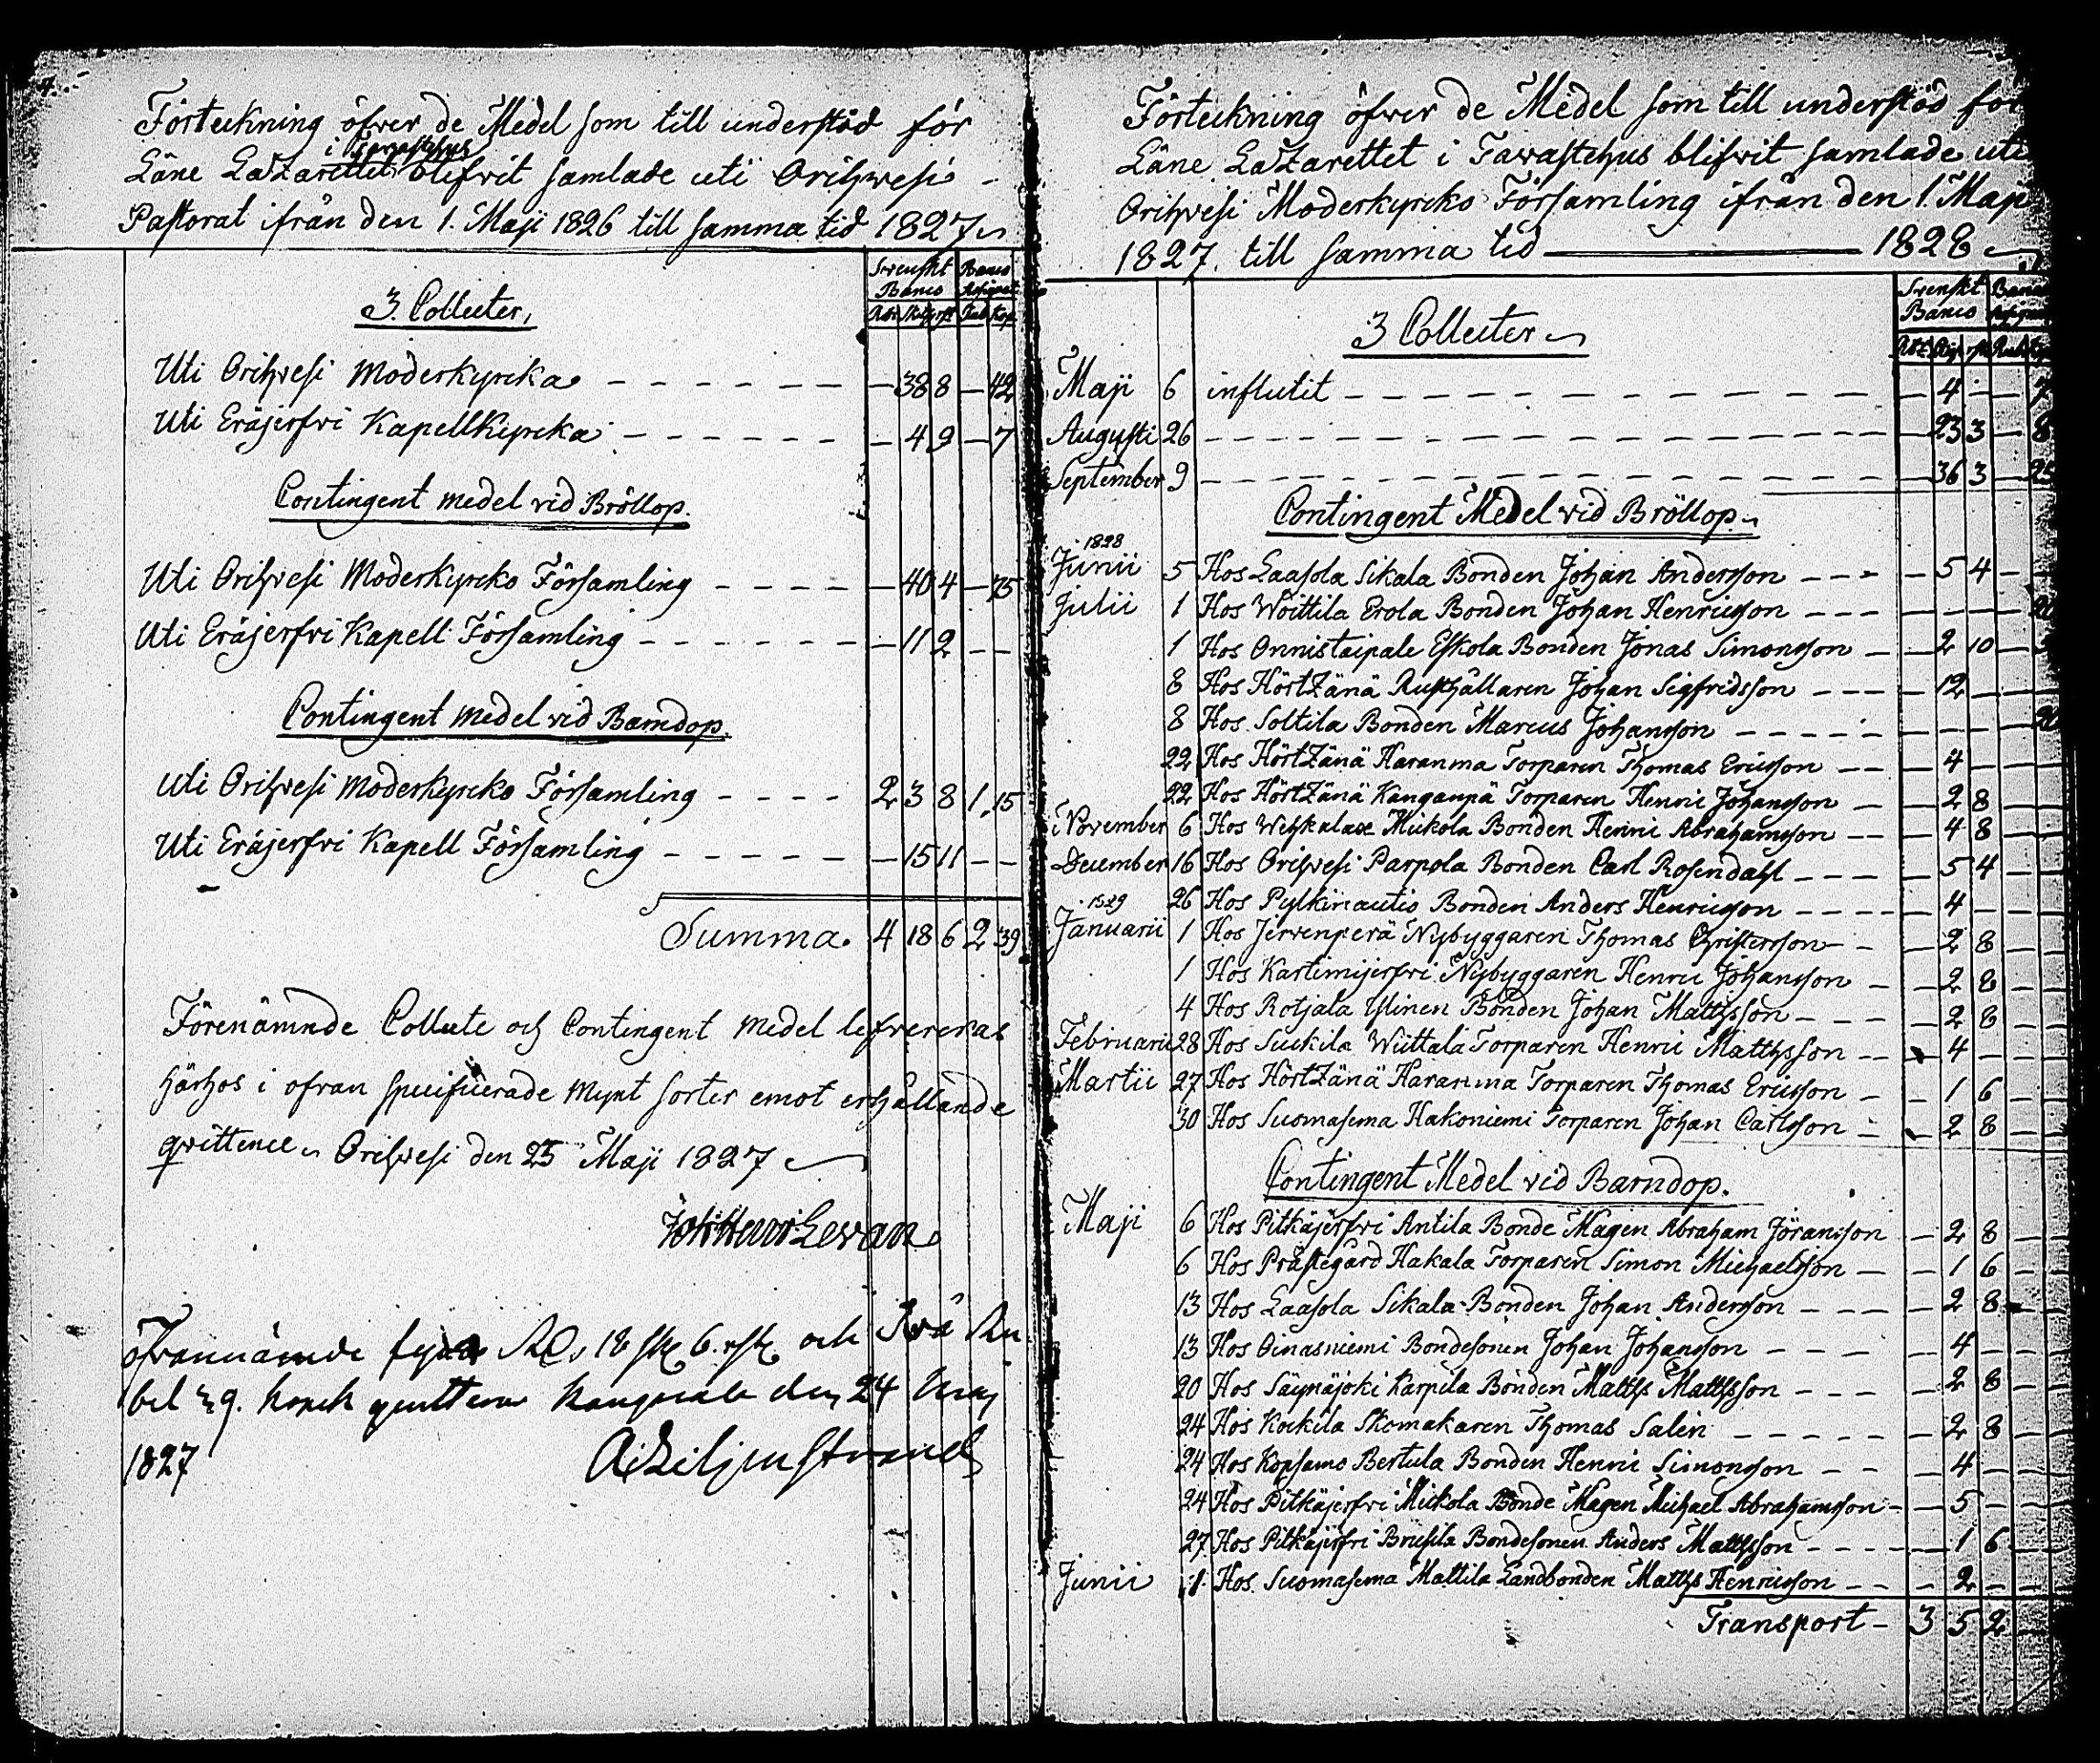 Förteckning öfver de Medel som till understöd för
Läne Lazarettet i Tavastehus blifvit samlade uti Orihvesi
Pastorat ifrån den 1. Maji 1826 till samma tid 1827
Svenskt Banco
Banco Assignat
Rdr Sk rst Rub Kop
3. Collecter,
Uti Orihvesi Moderkyrcka - 38 8 - 42
Uti Eräjerfvi Kapellkyrcka - 4 9 - 7
Contingent medel vid Bröllop.
Uti Orihvesi Moderkyrcko Församling - 40 4 - 75
Uti Eräjerfvi Kapell Församling - 11 2 - -
Contingent medel vid Barndop.
Uti Orihvesi Moderkyrcko Församling 2 3 8 1 15
Uti Eräjerfvi Kapell Församling - 15 11 - -
Summa. 4 18 6 2 39
Förenämnde Collecte och Contingent medel lefvereras
härhos i ofvan specificerade Mynt sorter emot erhållande
qvittence. Orihvesi den 23 Maji 1827
Joh Henr Levan
Ofvannämde fyra RD, 18 sk 6. rst och Två Ru
bel 39. Kopek qvitteras Kangasala den 24 May
1827
A: Liljenstrand
Förteckning öfver de Medel som till understöd för
Läne Lazarettet i Tavastehus blifvit samlade uti
Orihvesi Moderkyrcko Församling ifrån den 1. Maji
1827. till samma tid 1828
Svenskt Banco
3 Collecter
Maji 6 influtit - 4 - - 7
Augusti 26 - 23 3 - 8
September 9 - 36 3 - 25
Contingent Medel vid Bröllop
1828
Junii 5 Hos Laasola Sikala Bonden Johan Andersson - 5 4 -
Julii 1 Hos Woittila Erola Bonden Johan Henricsson - - - - 20
1 Hos Onnistaipale Eskola Bonden Jonas Simonsson - 2 10 -
8 Hos Hörtzänä Rusthållaren Johan Sigfridsson - 12 - -
8 Hos Soltila Bonden Marcus Johansson - - - - 20
22 Hos Hörtzänä Haranma Torparen Thomas Ericsson - 4 - -
22 Hos Hörtzänä Kanganpä Torparen Henric Johansson - 2 8 -
November 6 Hos Wehkalax Mickola Bonden Henric Abrahamsson - 4 8 -
December 16 Hos Orihvesi Parpola Bonden Carl Rosendahl - 5 4 -
26 Hos Pylkinautio Bonden Anders Henricsson - 4 - -
1829
Januarii 1 Hos Jervenperä Nybyggaren Thomas Christersson - 2 8 -
1 Hos Kartimijerfvi Nybyggaren Henric Johansson - 2 8 -
4 Hos Rotjala Ylinen Bonden Johan Mattsson - 2 8 -
Februarii 28 Hos Suckila Wiittala Torparen Henric Matthsson - 4 - -
Martii 27 Hos Hörtzänä Haranma Torparen Thomas Ericsson - 1 6 -
30 Hos Suomasema Hakoniemi Torparen Johan Carlsson - 2 8 -
Contingent Medel vid Barndop.
Maji 6 Hos Pitkäjerfvi Antila Bonde Magen Abraham Jöransson - 2 8 -
6 Hos Prästegård Hakala Torparen Simon Michaelsson - 1 6 -
13 Hos Laasola Sikala Bonden Johan Andersson - 2 8 -
13 Hos Oinasniemi Bondesonen Johan Johansson - 4 - -
20 Hos Säynäjoki Karpila Bonden Matths Matthsson - 2 8 -
24 Hos Kockila Skomakaren Thomas Salin - 2 8 -
24 Hos Kopsamo Bertula Bonden Henric Simonsson - 4 - -
24 Hos Pitkäjerfvi Mickola Bonde Magen Michael Abrahamsson - 5 - -
27 Hos Pitkäjerfvi Brusila Bondesonen Anders Mattsson - 1 6 -
Junii 1 Hos Suomasema Mattila Landbonden Matths Henricsson - 2 - -
Transport - 3 5 2